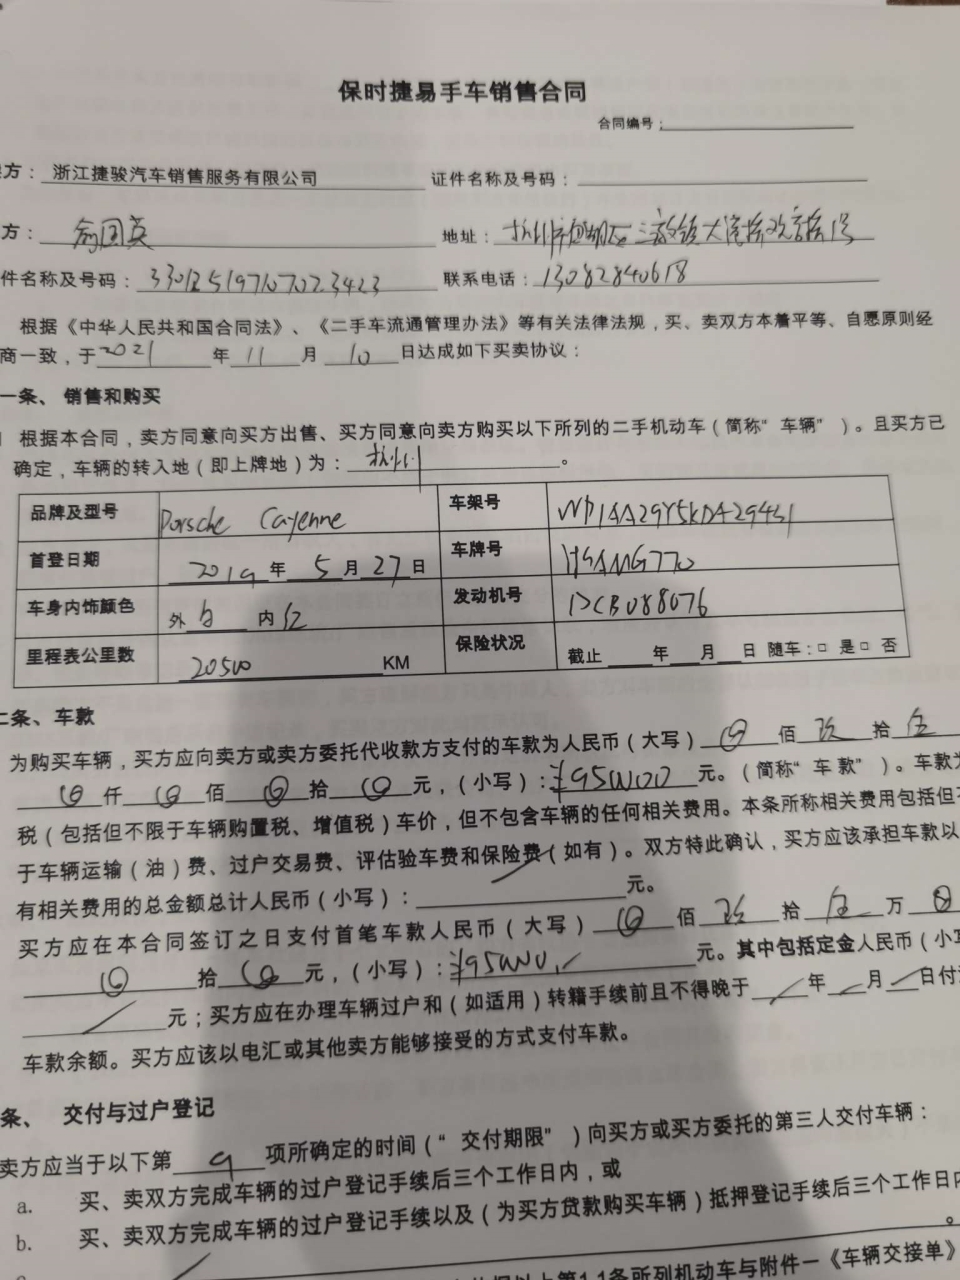 保时捷易手车销售合同
合同编号:
方: 浙江捷骏汽车销售服务有限公司 证件名称及号码:
方: 俞国英 地址:
件名称及号码: 联系电话: 13082840618
根据《中华人民共和国合同法》、《二手车流通管理办法》等有关法律法规,买、卖双方本着平等、自愿原则经
商一致,于 2021 年 11 月 10 日达成如下买卖协议:
一条、 销售和购买
根据本合同,卖方同意向买方出售、买方同意向卖方购买以下所列的二手机动车(简称“车辆”)。且买方已
确定,车辆的转入地(即上牌地)为: 杭州 。
品牌及型号 Porsche Cayenne 车架号 WP1AA29Y5KDA29451
首登日期 2019 年 5 月 27 日 车牌号
车身内饰颜色 外 白 内 红 发动机号 DCB088076
里程表公里数 20500 KM 保险状况 截止 年 月 日 随车:□ 是□ 否
二条、车款
为购买车辆,买方应向卖方或卖方委托代收款方支付的车款为人民币(大写) 佰 玖 拾 伍
仟 佰 拾 元,(小写):¥950000 元。(简称“车款”)。车款为
税(包括但不限于车辆购置税、增值税)车价,但不包含车辆的任何相关费用。本条所称相关费用包括但不
于车辆运输(油)费、过户交易费、评估验车费和保险费(如有)。双方特此确认,买方应该承担车款以
有相关费用的总金额总计人民币(小写): 元。
买方应在本合同签订之日支付首笔车款人民币(大写) 佰 玖 拾 伍 万
拾 元,(小写):¥950000 元。其中包括定金人民币(小写
元;买方应在办理车辆过户和(如适用)转籍手续前且不得晚于 年 月 日付
车款余额。买方应该以电汇或其他卖方能够接受的方式支付车款。
条、 交付与过户登记
卖方应当于以下第 a 项所确定的时间(“交付期限”)向买方或买方委托的第三人交付车辆:
a. 买、卖双方完成车辆的过户登记手续后三个工作日内,或
b. 买、卖双方完成车辆的过户登记手续以及(为买方贷款购买车辆)抵押登记手续后三个工作日内
。
以上第1.1条所列机动车与附件一《车辆交接单》